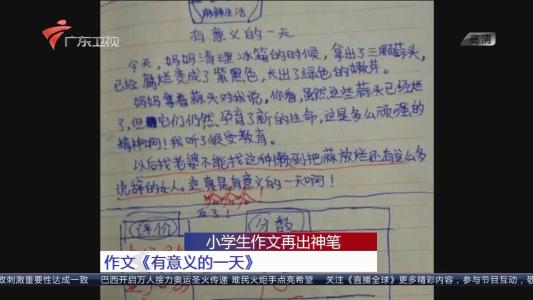 麻辣生活
广东卫视
高清
有意义的一天
今天,妈妈清理冰箱的时候,拿出了三颗蒜头,
已经腐烂变成了紫黑色,长出了绿色的嫩芽。
妈妈拿着蒜头对我说,你看,虽然这些蒜头已经烂
了,但它们仍然孕育了新的生命,这是多么顽强的
精神啊!我听了很受教育。
以后找老婆不能找这种懒到把蒜放烂还有这么多
说辞的女人,这真是有意义的一天啊!
哈哈哈!
(评价)
(分数)
小学生作文再出神笔
作文《有意义的一天》
政刺激重要性达成一致
巴西开启万人接力奥运圣火传递 难民火炬手点亮希望
关注《直播全球》更多精彩内容,参与节目互动,敬